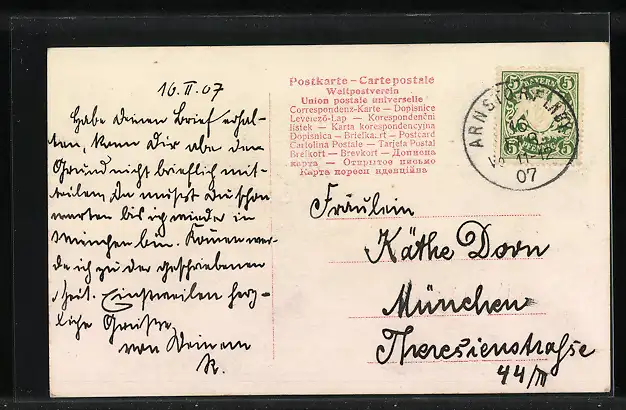 10. II. 07
Habe deinen Brief erhal-
ten, kann Dir aber den
Grund nicht brieflich mit-
teilen. Du mußt Du schon
warten bis ich wieder in
München bin. Kommen wer-
de ich zu der geschriebenen
Zeit. Einstweilen herz-
liche Grüße,
von Deinem
R.
Postkarte – Carte postale
Weltpostverein
Union postale universelle
Correspondenz-Karte – Dopisnice
Levelező-Lap – Korespondenční
listek – Karta korespondencyjna
Dopisnica – Briefkaart – Postcard
Cartolina Postale – Tarjeta Postal
Brefkort – Brevkort – Дописна
карта – Открытое письмо
Карта
5 BAYERN 5
5 5
ARNS
07
Fräulein
Käthe Dorn
München
Theresienstraße
44/III